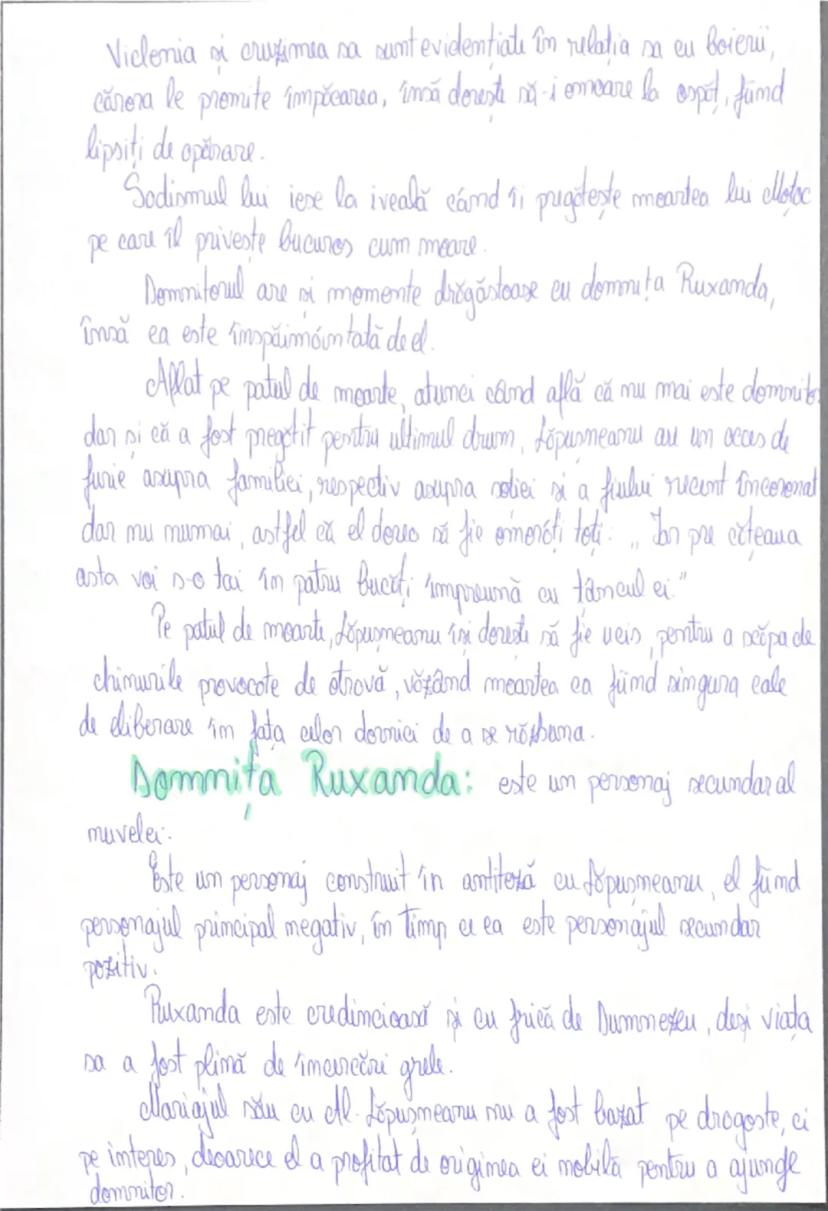 Viclenia și cruzimea sa sunt evidențiate în relația sa cu boierii,
cărora le promite împăcarea, însă dorește să-i omoare la ospăț, fiind
lipsiți de apărare.
Sadismul lui iese la iveală când îi pregătește moartea lui Moțoc
pe care îl privește bucuros cum moare.
Domnitorul are și momente drăgăstoase cu domnița Ruxanda,
însă ea este înspăimântată de el.
Aflat pe patul de moarte, atunci când află că nu mai este domnitor
dar și că a fost pregătit pentru ultimul drum, Lăpușneanu are un acces de
furie asupra familiei, respectiv asupra soției și a fiului recent încoronat
dar nu numai, astfel că el dorea să fie omorâți toți: „Iar pre cățeaua
asta voi s-o tai în patru bucăți împreună cu țâncul ei."
Pe patul de moarte, Lăpușneanu își dorește să fie ucis, pentru a scăpa de
chinurile provocate de otravă, văzând moartea ca fiind singura cale
de eliberare în fața celor dornici de a se răzbuna.
Domnița Ruxanda: este un personaj secundar al
nuvelei.
Este un personaj construit în antiteză cu Lăpușneanu, el fiind
personajul principal negativ, în timp ce ea este personajul secundar
pozitiv.
Ruxanda este credincioasă și cu frică de Dumnezeu, deși viața
sa a fost plină de încercări grele.
Mariajul său cu Al. Lăpușneanu nu a fost bazat pe dragoste, ci
pe interes, deoarece el a profitat de originea ei nobilă pentru a ajunge
domnitor.